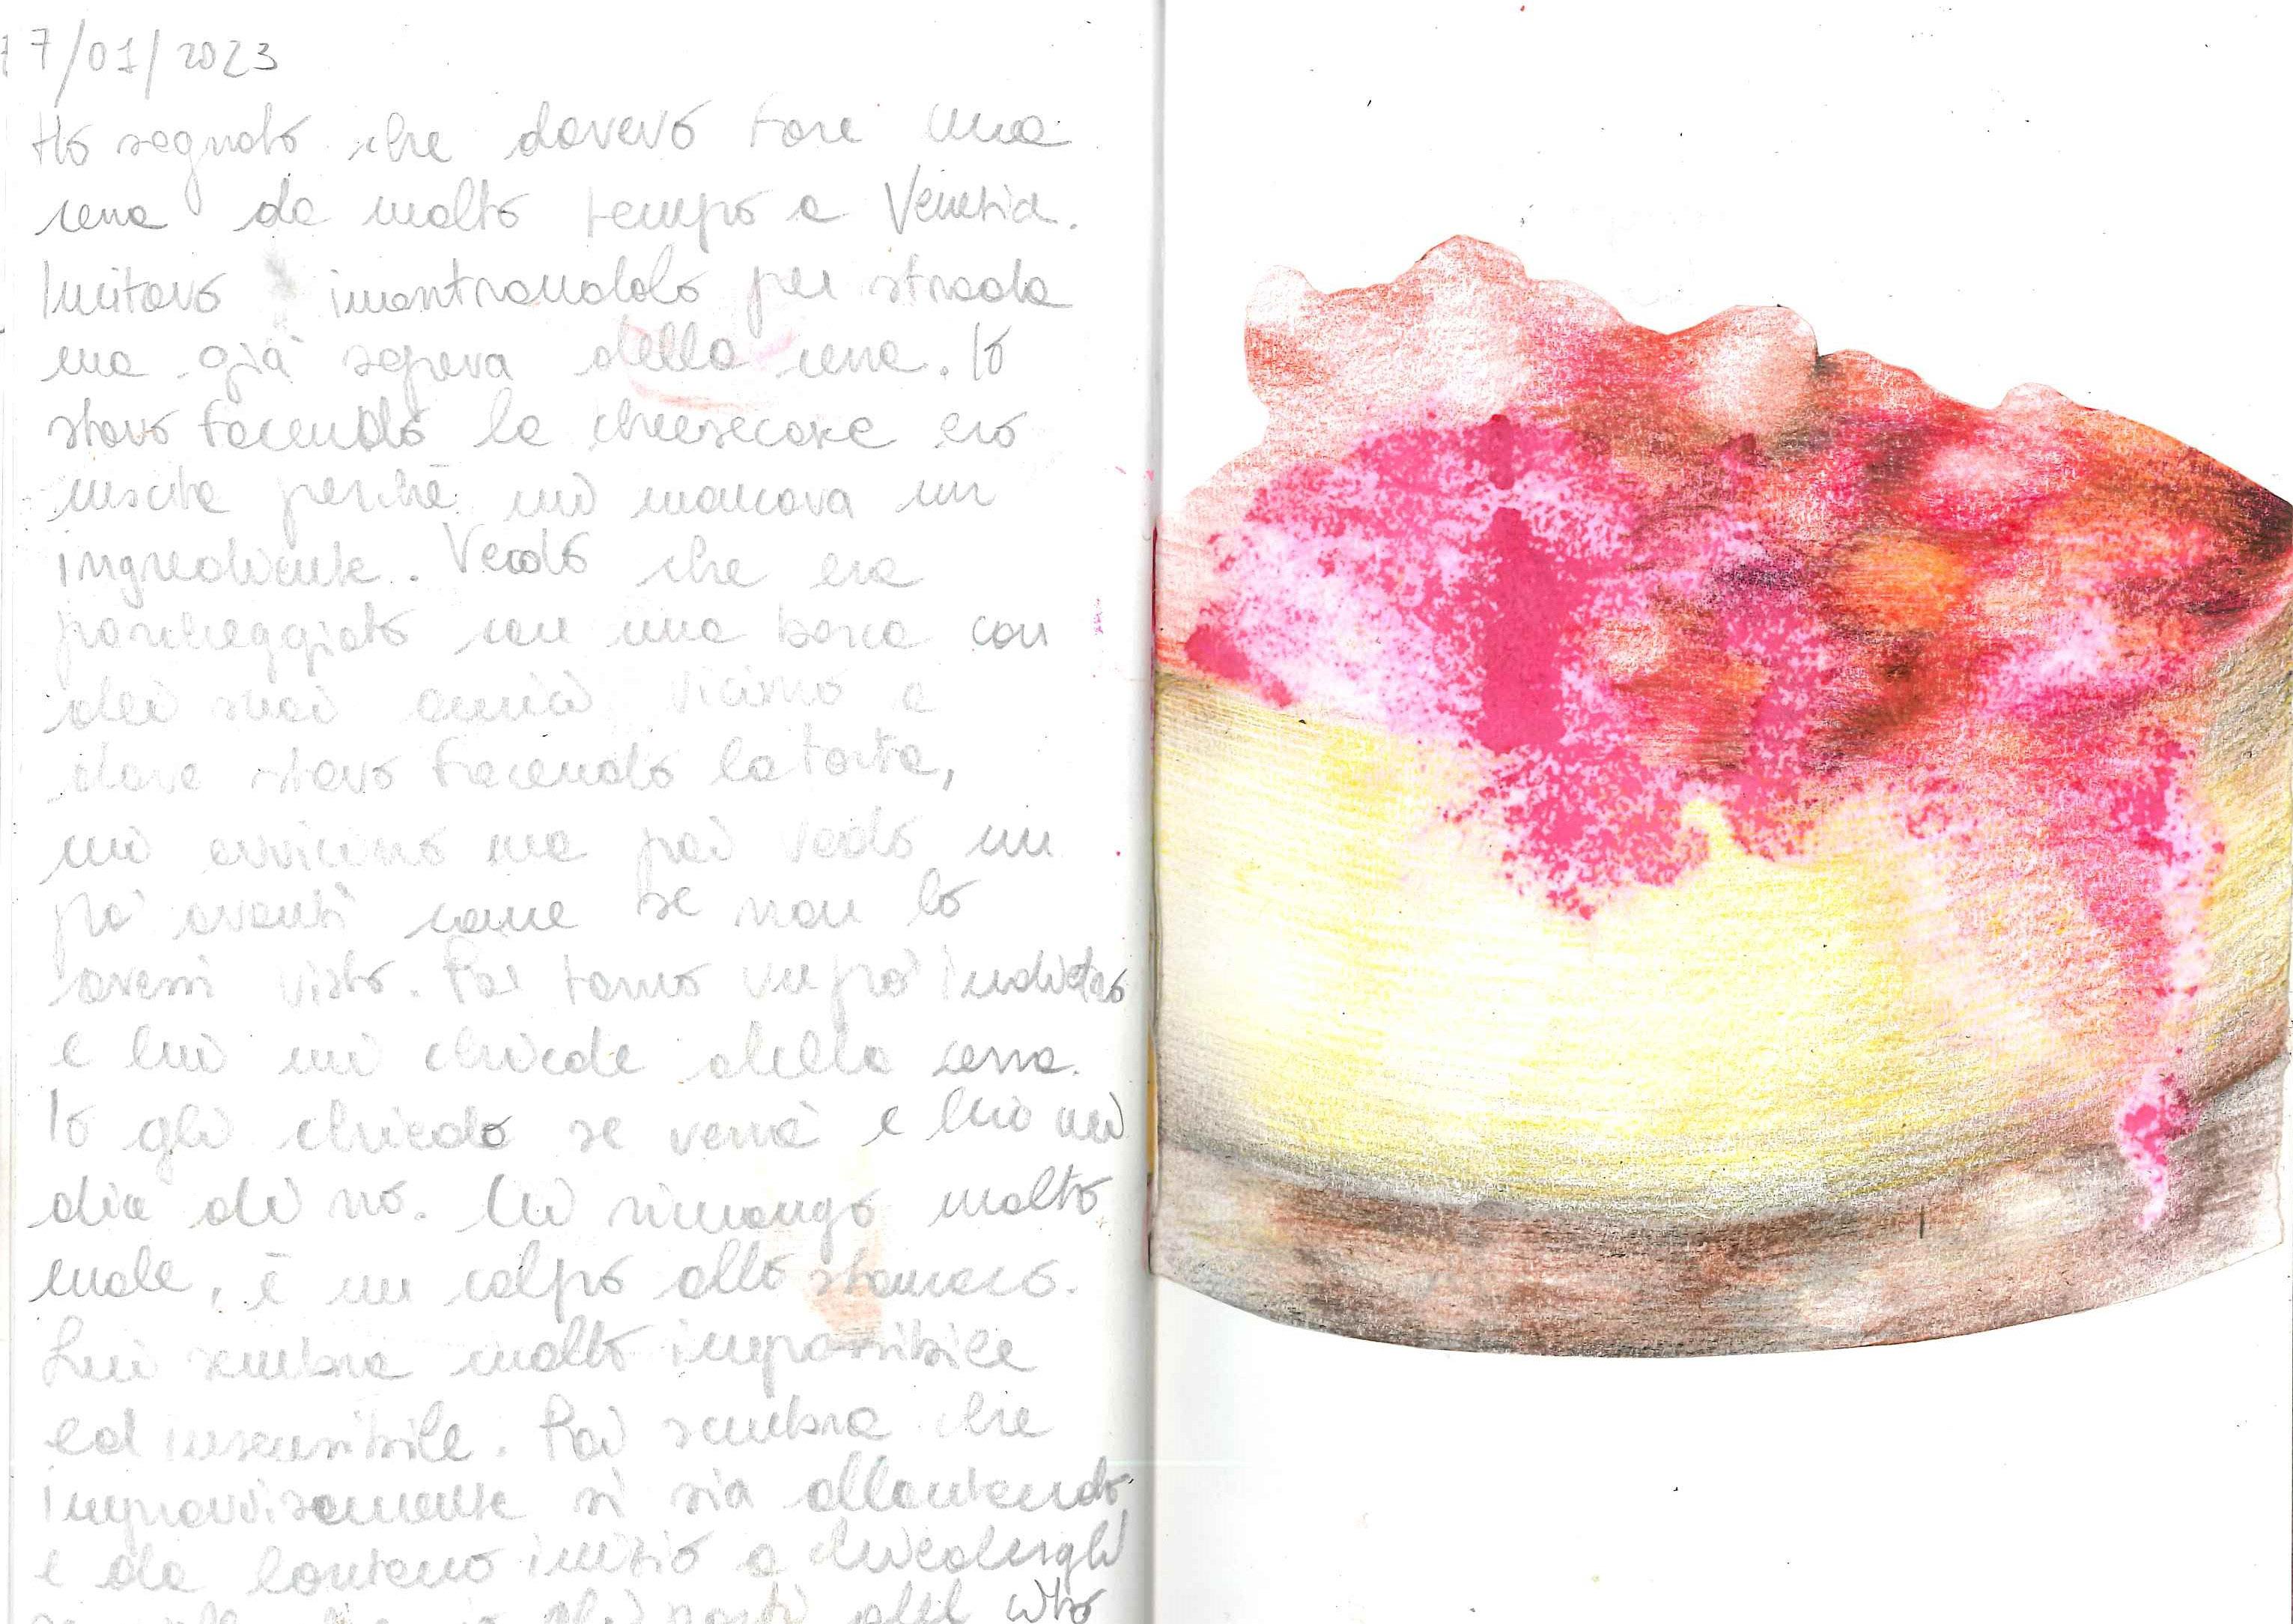 17/01/2023
Ho sognato che dovevo fare una
cena da molto tempo a Venezia.
Invitavo incontrandolo per strada
ma già sapeva della cena. Io
stavo facendo la cheesecake ero
uscita perchè mi mancava un
ingrediente. Vedo che era
parcheggiato con una barca con
dei suoi amici vicino a
dove stavo facendo la torta,
mi avvicino ma poi vado un
po' avanti come se non lo
avessi visto. Poi torno un po' indietro
e lui mi chiede della cena.
Io gli chiedo se verrà e lui mi
dice di no. Ci rimango molto
male, è un colpo allo stomaco.
Lui sembra molto impossibile
ed insensibile. Poi sembra che
improvvisamente si sia allontanando
e da lontano inizio a chiedergli